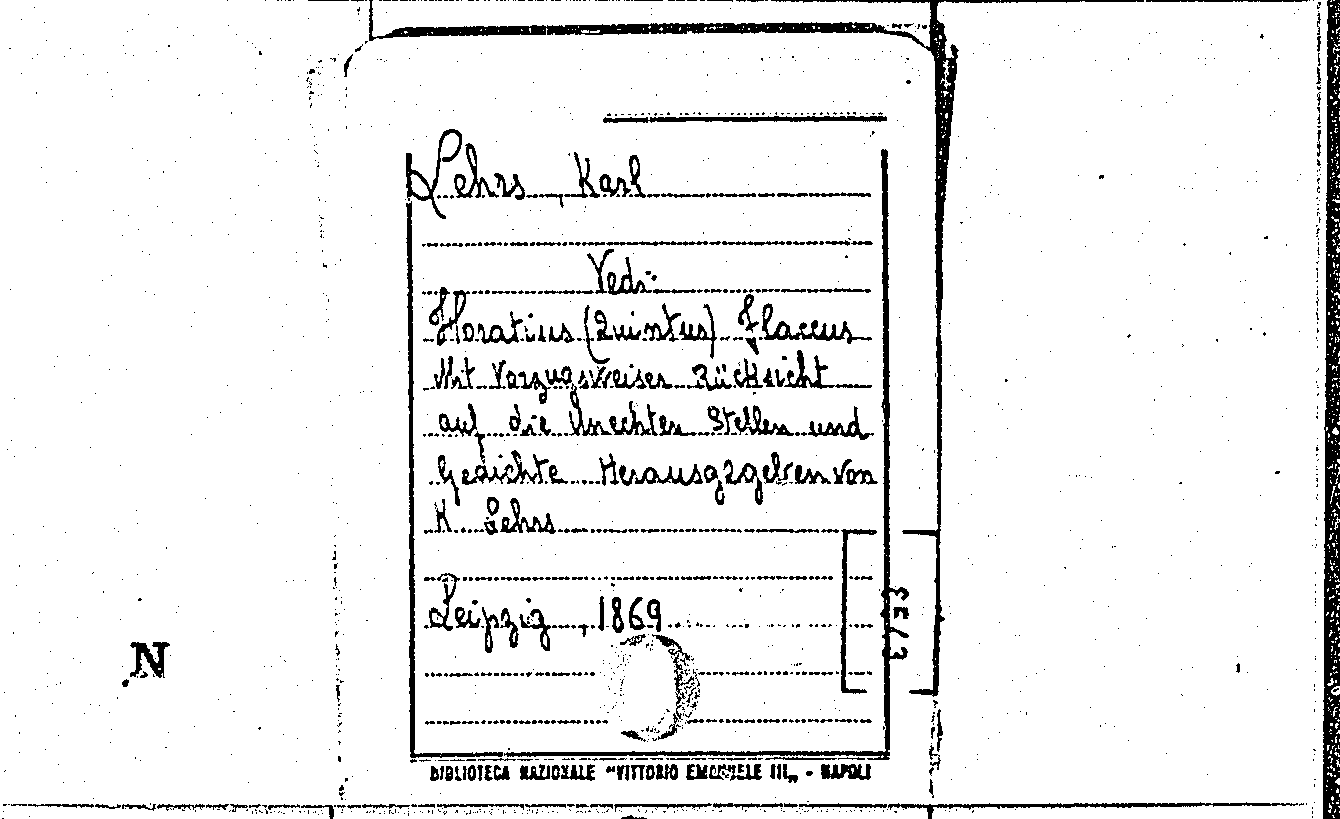 Lehrs, Karl
Vedi:
Horatius (Quintus) Flaccus
Mit Vorzugsweiser Rücksicht
auf die Unechten Stellen und
Gedichte Herausgegeben von
K. Lehrs
Leipzig, 1869
N
BIBLIOTECA NAZIONALE "VITTORIO EMANUELE III„ - NAPOLI